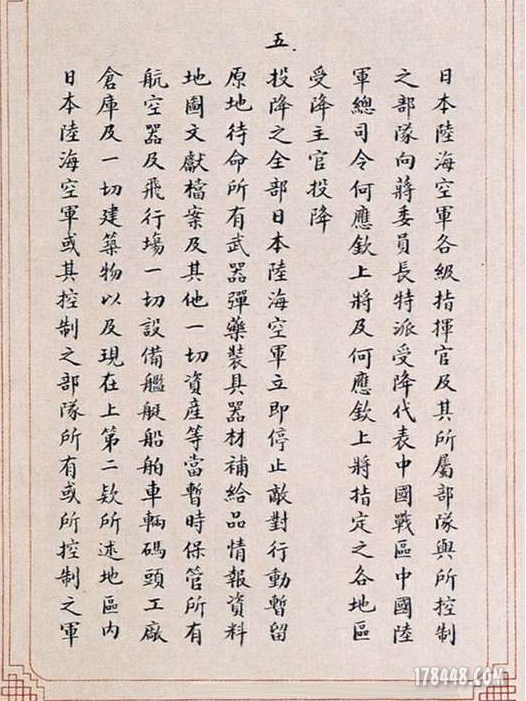 日本陸海空軍各級指揮官及其所屬部隊與所控制
之部隊向蔣委員長特派受降代表中國戰區中國陸
軍總司令何應欽上將及何應欽上將指定之各地區
受降主官投降
五.
投降之全部日本陸海空軍立即停止敵對行動暫留
原地待命所有武器彈藥裝具器材補給品情報資料
地圖文獻檔案及其他一切資產等當暫時保管所有
航空器及飛行場一切設備艦艇船舶車輛碼頭工廠
倉庫及一切建築物以及現在上第二欵所述地區內
日本陸海空軍或其控制之部隊所有或所控制之軍
178448.COM